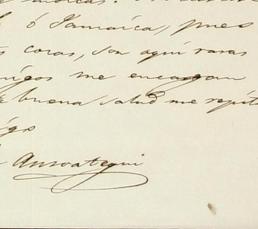 ó Jamaica, pues
cosas, son aquí raras
migos me encargan
buena salud me repito
igo
Anzoategui